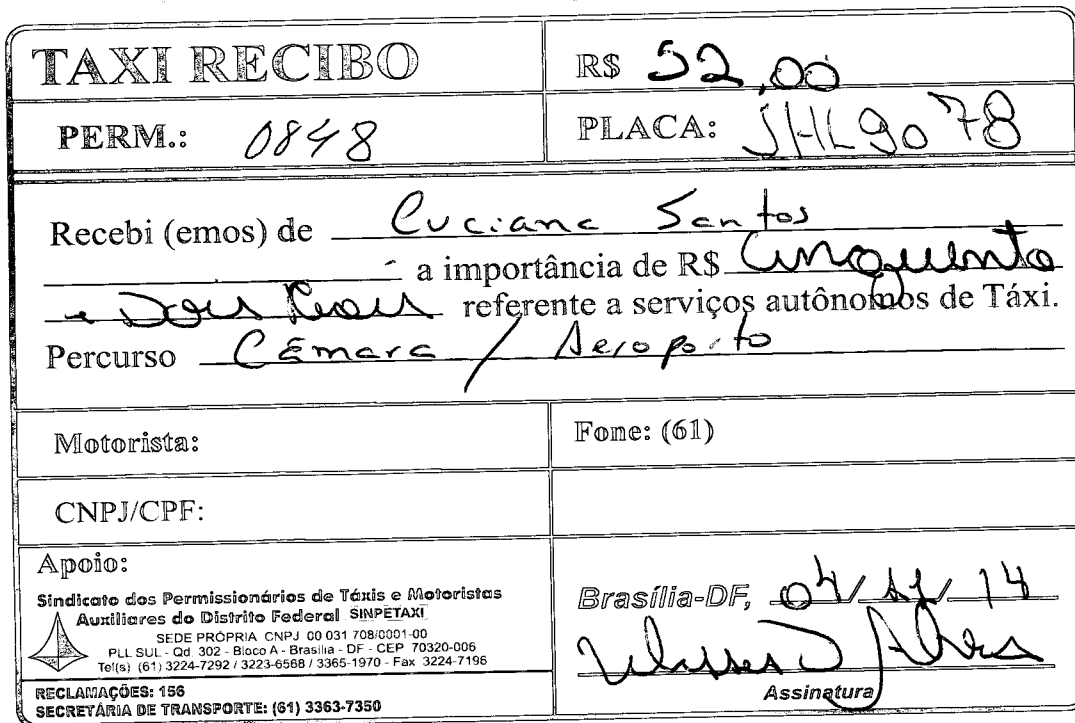 TAXI RECIBO
R$ 52,00
PERM.: 0848
PLACA: JHL 9078
Recebi (emos) de Luciana Santos
a importância de R$ Cinquenta
e Dois Reais referente a serviços autônomos de Táxi.
Percurso Câmara / Aeroporto
Motorista:
Fone: (61)
CNPJ/CPF:
Apoio:
Sindicato dos Permissionários de Táxis e Motoristas
Auxiliares do Distrito Federal SINPETAXI
SEDE PRÓPRIA CNPJ 00 031 708/0001-00
PLL SUL - Qd. 302 - Bloco A - Brasília - DF - CEP 70320-006
Tel(s) (61) 3224-7292 / 3223-6568 / 3365-1970 - Fax 3224-7196
RECLAMAÇÕES: 156
SECRETÁRIA DE TRANSPORTE: (61) 3363-7350
Brasília-DF, 04/11/14
Alves
Assinatura